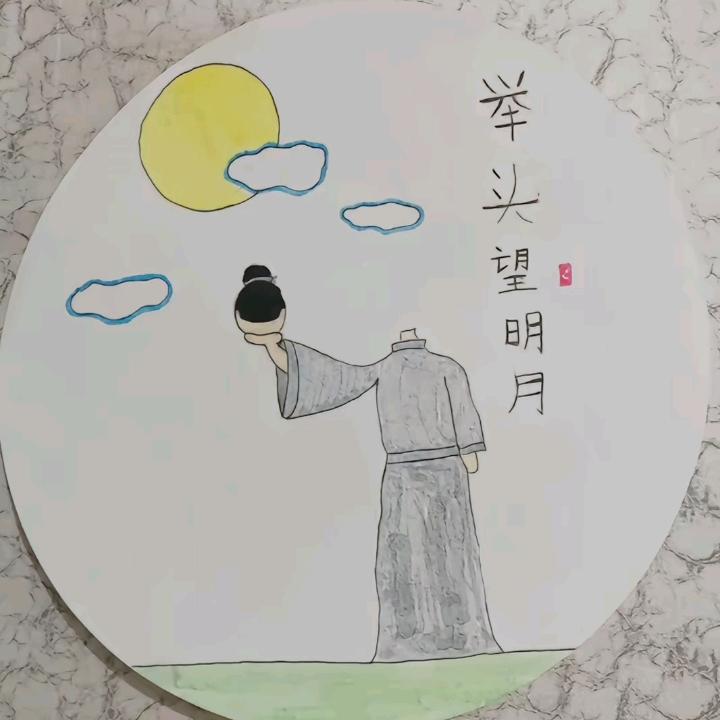 举头望明月